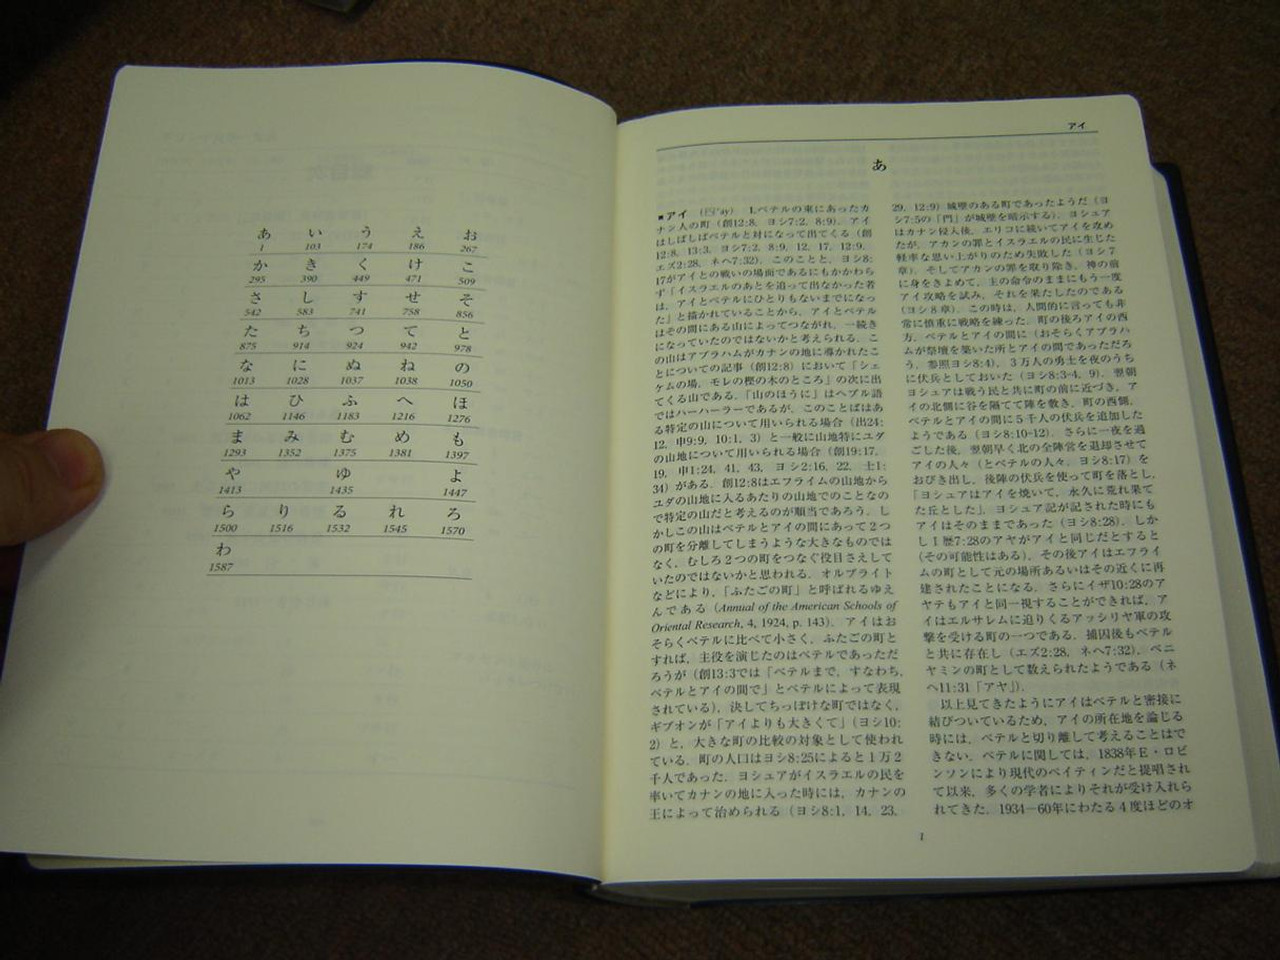 あ い う え お
1 103 174 186 267
か き く け こ
295 390 449 471 509
さ し す せ そ
542 583 741 758 856
た ち つ て と
875 914 924 942 978
な に ぬ ね の
1013 1028 1037 1038 1050
は ひ ふ へ ほ
1062 1146 1183 1216 1276
ま み む め も
1293 1352 1375 1381 1397
や ゆ よ
1413 1435 1447
ら り る れ ろ
1500 1516 1532 1545 1570
わ
1587
アイ
あ
■アイ 1.ベテルの東にあったカ
ナン人の町(創12:8,ヨシ7:2,8:9).アイ
はしばしばベテルと対になって出てくる(創
12:8,13:3,ヨシ7:2,8:9,12,17,12:9,
エズ2:28,ネヘ7:32).このことと,ヨシ8:
17がアイとの戦いの場面であるにもかかわら
ず「イスラエルのあとを追って出なかった者
は,アイとベテルにひとりもないまでになっ
た」と描かれていることから,アイとベテル
はその間にある山によってつながれ,一続き
になっていたのではないかと考えられる.こ
の山はアブラハムがカナンの地に導かれたこ
とについての記事(創12:8)において「シェ
ケムの場,モレの樫の木のところ」の次に出
てくる山である.「山のほうに」はヘブル語
ではハーハーラーであるが,このことばはあ
る特定の山について用いられる場合(出24:
12,申9:9,10:1,3)と一般に山地特にユダ
の山地について用いられる場合(創19:17,
19,申1:24,41,43,ヨシ2:16,22,士1:
34)がある.創12:8はエフライムの山地から
ユダの山地に入るあたりの山地でのことなの
で特定の山だと考えるのが順当であろう.し
かしこの山はベテルとアイの間にあって2つ
の町を分離してしまうような大きなものでは
なく,むしろ2つの町をつなぐ役目さえして
いたのではないかと思われる.オルブライト
などにより,「ふたごの町」と呼ばれるゆえ
んである(Annual of the American Schools of
Oriental Research, 4, 1924, p. 143).アイはお
そらくベテルに比べて小さく,ふたごの町と
すれば,主役を演じたのはベテルであっただ
ろうが(創13:3では「ベテルまで,すなわち,
ベテルとアイの間で」とベテルによって表現
されている),決してちっぽけな町ではなく,
ギブオンが「アイよりも大きくて」(ヨシ10:
2)と,大きな町の比較の対象として使われ
ている.町の人口はヨシ8:25によると1万2
千人であった.ヨシュアがイスラエルの民を
率いてカナンの地に入った時には,カナンの
王によって治められる(ヨシ8:1,14,23,
29,12:9)城壁のある町であったようだ(ヨ
シ7:5の「門」が城壁を暗示する).ヨシュア
はカナン侵入後,エリコに続いてアイを攻め
たが,アカンの罪とイスラエルの民に生じた
軽率な思い上がりのため失敗した(ヨシ7
章).そしてアカンの罪を取り除き,神の前
に身をきよめて,主の命令のままにもう一度
アイ攻略を試み,それを果たしたのである
(ヨシ8章).この時は,人間的に言っても非
常に慎重に戦略を練った.町の後ろアイの西
方,ベテルとアイの間に(おそらくアブラハ
ムが祭壇を築いた所とアイの間であっただろ
う.参照ヨシ8:4),3万人の勇士を夜のうち
に伏兵としておいた(ヨシ8:3-4,9).翌朝
ヨシュアは戦う民と共に町の前に近づき,ア
イの北側に谷を隔てて陣を敷き,町の西側,
ベテルとアイの間に5千人の伏兵を追加した
ようである(ヨシ8:10-12).さらに一夜を過
ごした後,翌朝早く北の全陣営を退却させて
アイの人々(とベテルの人々,ヨシ8:17)を
おびき出し,後陣の伏兵を使って町を落とし,
「ヨシュアはアイを焼いて,永久に荒れ果て
た丘とした」.ヨシュア記が記された時にも
アイはそのままであった(ヨシ8:28).しか
し1歴7:28のアヤがアイと同じだとすると
(その可能性はある),その後アイはエフライ
ムの町として元の場所あるいはその近くに再
建されたことになる.さらにイザ10:28のア
ヤテもアイと同一視することができれば,ア
イはエルサレムに迫りくるアッシリヤ軍の攻
撃を受ける町の一つである.捕囚後もベテル
と共に存在し(エズ2:28,ネヘ7:32),ベニ
ヤミンの町として数えられたようである(ネ
ヘ11:31「アヤ」).
以上見てきたようにアイはベテルと密接に
結びついているため,アイの所在地を論じる
時には,ベテルと切り離して考えることはで
きない.ベテルに関しては,1838年E・ロビ
ンソンにより現代のベイティンだと提唱され
て以来,多くの学者によりそれが受け入れら
れてきた.1934-60年にわたる4度ほどのオ
1